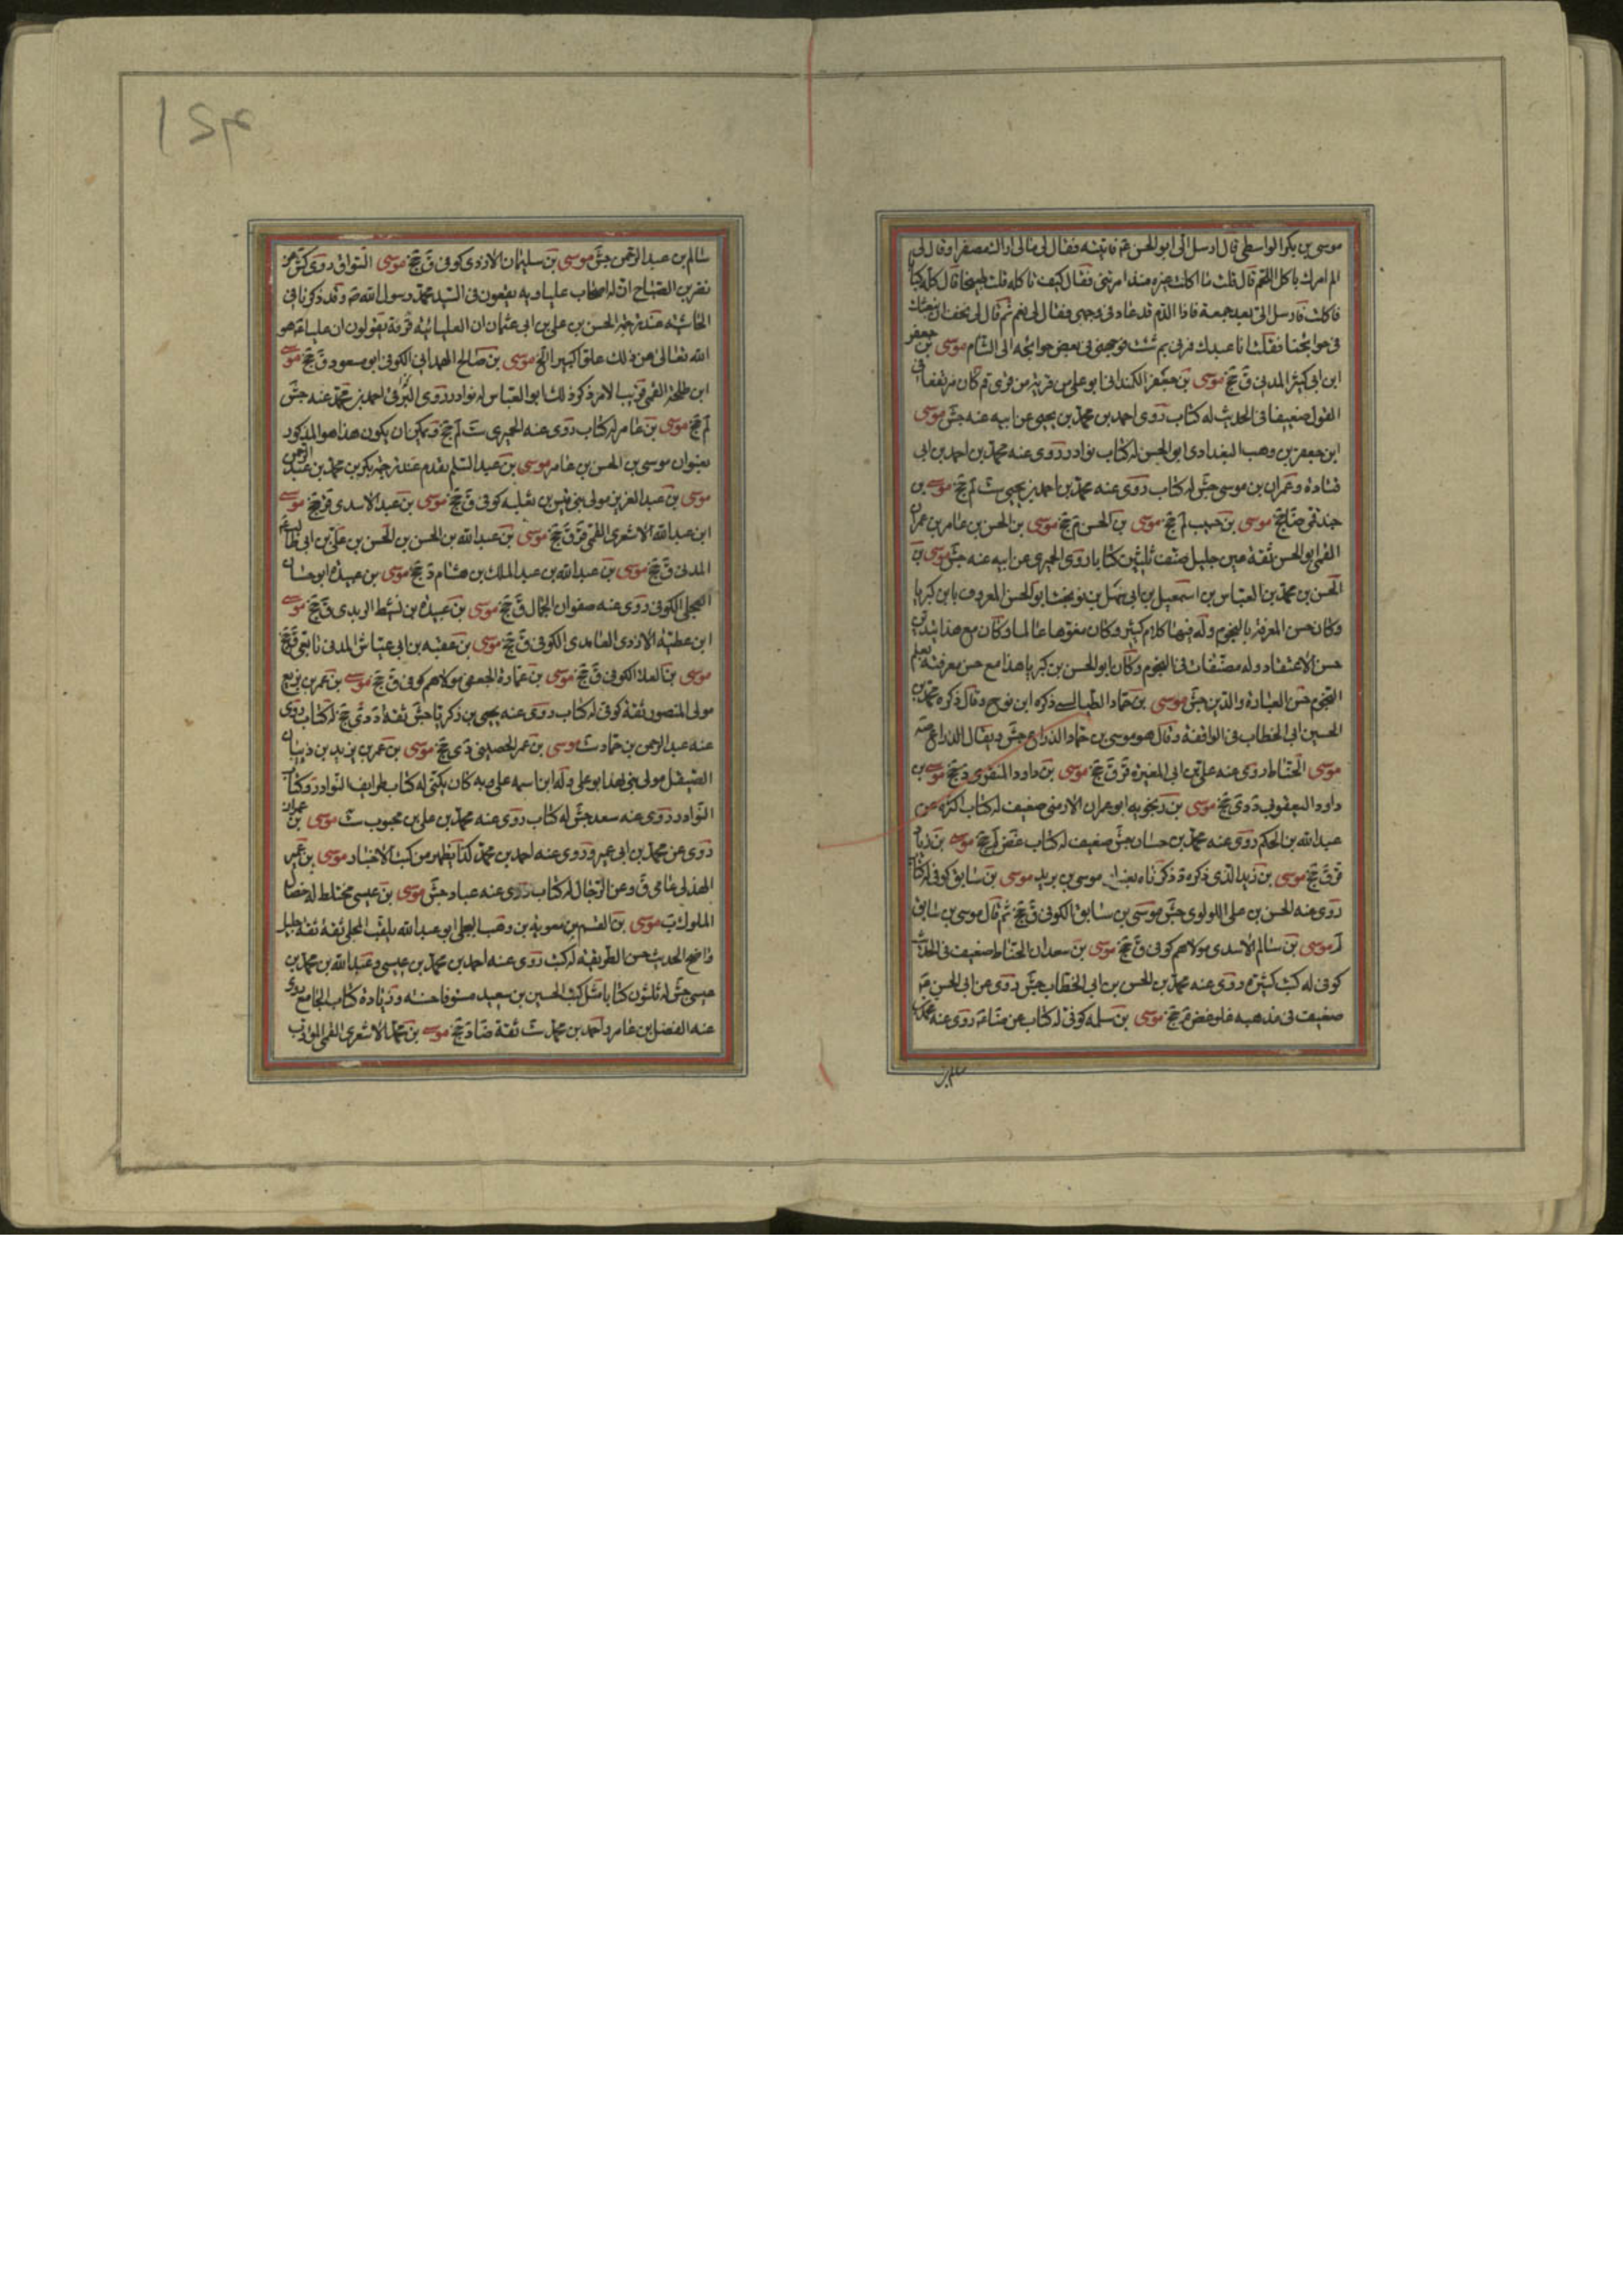 موسى بن بكر الواسطي قال ارسل الى ابو الحسن ع فاتيته فقال لي مالي اراك مصفرا وقال لي
الم امرك باكل اللحم قال قلت ما اكلت غيره منذ امرتني فقال كيف تاكله قلت طبيخا قال كله كبابا
فاكلت فارسل الي بعد جمعة فاذا الدم قد عاد في وجهي فقال لي نعم ثم قال لي يخف ان نبعثك
في حوائجنا فقلت انا عبدك فمرني بم شئت فوجهني في بعض حوائجه الى الشام موسى بن جعفر
ابن ابي كثير المدني ق جخ موسى بن جعفر الكمنداني ابو علي من قرية من قرى قم كان مرتفعا في
القول ضعيفا في الحديث له كتاب روى احمد بن محمد بن يحيى عن ابيه عنه جش موسى
ابن جعفر بن وهب البغدادي ابو الحسن له كتاب نوادر روى عنه محمد بن احمد بن ابي
قتادة وعمران بن موسى جش له كتاب روى عنه محمد بن احمد بن يحيى ست لم جخ موسى بن
جندقي ضا جخ موسى بن حبيب لم جخ موسى بن الحسن م جخ موسى بن الحسن بن عامر بن عمران
القمي ابو الحسن ثقة عين جليل صنف ثلثين كتابا روى الحميري عن ابيه عنه جش موسى بن
الحسن بن محمد بن العباس بن اسمعيل بن ابي سهل بن نوبخت ابو الحسن المعروف بابن كبريا
وكان حسن المعرفة بالنجوم وله فيها كلام كثير وكان مفوها عالما وكان مع هذا يتدين
حسن الاعتقاد وله مصنفات في النجوم وكان ابو الحسن بن كبريا هذا مع حسن معرفته بعلم
النجوم حسن العبادة والدين جش موسى بن حماد الطيالسي ذكره ابن نوح وقال ذكره محمد بن
الحسين ابي الخطاب في الواقفة وقال هو موسى بن حماد الذراع جش ويقال الذراع صه
موسى الحناط روى عنه علي بن ابي المغيرة قر ق جخ موسى بن داود المنقري د جخ موسى بن
داود اليعقوبي د دي جخ موسى بن رنجويه ابو عمران الارمني ضعيف له كتاب اكثره عن
عبدالله بن الحكم روى عنه محمد بن حسان جش ضعيف له كتاب غض لم جخ موسى بن زياد
قر ق جخ موسى بن زيد الذي ذكره د ذكرناه بعنوان موسى بن بريد موسى بن سابق كوفي له كتاب
روى عنه الحسن بن علي اللولوي جش موسى بن سابق الكوفي ق جخ ثم قال موسى بن سابق
لم موسى بن سالم الاسدي مولاهم كوفي ق جخ موسى بن سعدان الحناط ضعيف في الحديث
كوفي له كتب كثيرة روى عنه محمد بن الحسن بن ابي الخطاب جش روى عن ابي الحسن ع
ضعيف في مذهبه غلو غض م جخ موسى بن سلمه كوفي له كتاب عن ضا ع روى عنه محمد بن
سالم بن
١٥٣
سالم بن عبد الرحمن جش موسى بن سليمان الازدي كوفي ق جخ موسى السواق روى كش عن
نصر بن الصباح انه له اصحاب علياويه يقعون في السيد محمد رسول الله ص وقد ذكرنا في
الحاشيه عند ترجمة الحسن بن علي بن ابي عثمان ان العليائيه فرقة يقولون ان عليا ع هو
الله تعالى عن ذلك علوا كبيرا الخ موسى بن صالح الهمداني الكوفي ابو مسعود ق جخ موسى
ابن طلحة القمي قريب الامر ذكر ذلك ابو العباس له نوادر روى البرقي احمد بن محمد عنه جش
لم جخ موسى بن عامر له كتاب روى عنه الحميري ست لم جخ ويمكن ان يكون هذا هو المذكور
بعنوان موسى بن الحسن بن عامر موسى بن عبد السلم تقدم عند ترجمة بكر بن محمد بن عبد الرحمن
موسى بن عبد العزيز مولى بني قيس بن ثعلبه كوفي ق جخ موسى بن عبد الاسدي قر جخ موسى
ابن عبد الله الاشعري القمي قر ق جخ موسى بن عبد الله بن الحسن بن الحسن بن علي بن ابي طالب ع
المدني ق جخ موسى بن عبد الله بن عبد الملك بن هشام د جخ موسى بن عبيدة ابو حسان
العجلي الكوفي روى عنه صفوان الجمال ق جخ موسى بن عبيدة بن نشيط الربدي ق جخ موسى
ابن عطية الازدي الغامدي الكوفي ق جخ موسى بن عقبه بن ابي عياش المدني تابعي ق جخ
موسى بن العلا الكوفي ق جخ موسى بن عمارة الجعفي مولاهم كوفي ق جخ موسى بن عمر بن بزيع
مولى المنصور ثقة كوفي له كتاب روى عنه يحيى بن زكريا جش ثقة د دي جخ له كتاب روى
عنه عبد الرحمن بن حماد ست موسى بن عمر الحصيني دي جخ موسى بن عمر بن يزيد بن ذبيان
الصيقل مولى بني نهد ابو علي وله ابن اسمه علي وبه كان يكنى له كتاب طرايف النوادر وكتاب
النوادر روى عنه سعد جش له كتاب روى عنه محمد بن علي بن محبوب ست موسى بن عمران
روى عن محمد بن ابي عمير وروى عنه احمد بن محمد كذا يظهر من كتب الاخبار موسى بن عمير
الهذلي عامي ق وعن الرجال له كتاب روى عنه عباد جش موسى بن عيسى مختلط له خصال
الملوك ب موسى بن القسم بن معوية بن وهب البجلي ابو عبد الله يلقب المجلي ثقة ثقة جليل
واضح الحديث حسن الطريقه له كتب روى عنه احمد بن محمد بن عيسى وعبد الله بن محمد بن
عيسى جش له ثلثون كتابا مثل كتب الحسين بن سعيد مستوفا حسنه وزيادة كتاب الجامع روى
عنه الفضل بن عامر واحمد بن محمد ست ثقة ضا د جخ موسى بن محمد الاشعري القمي المؤدب